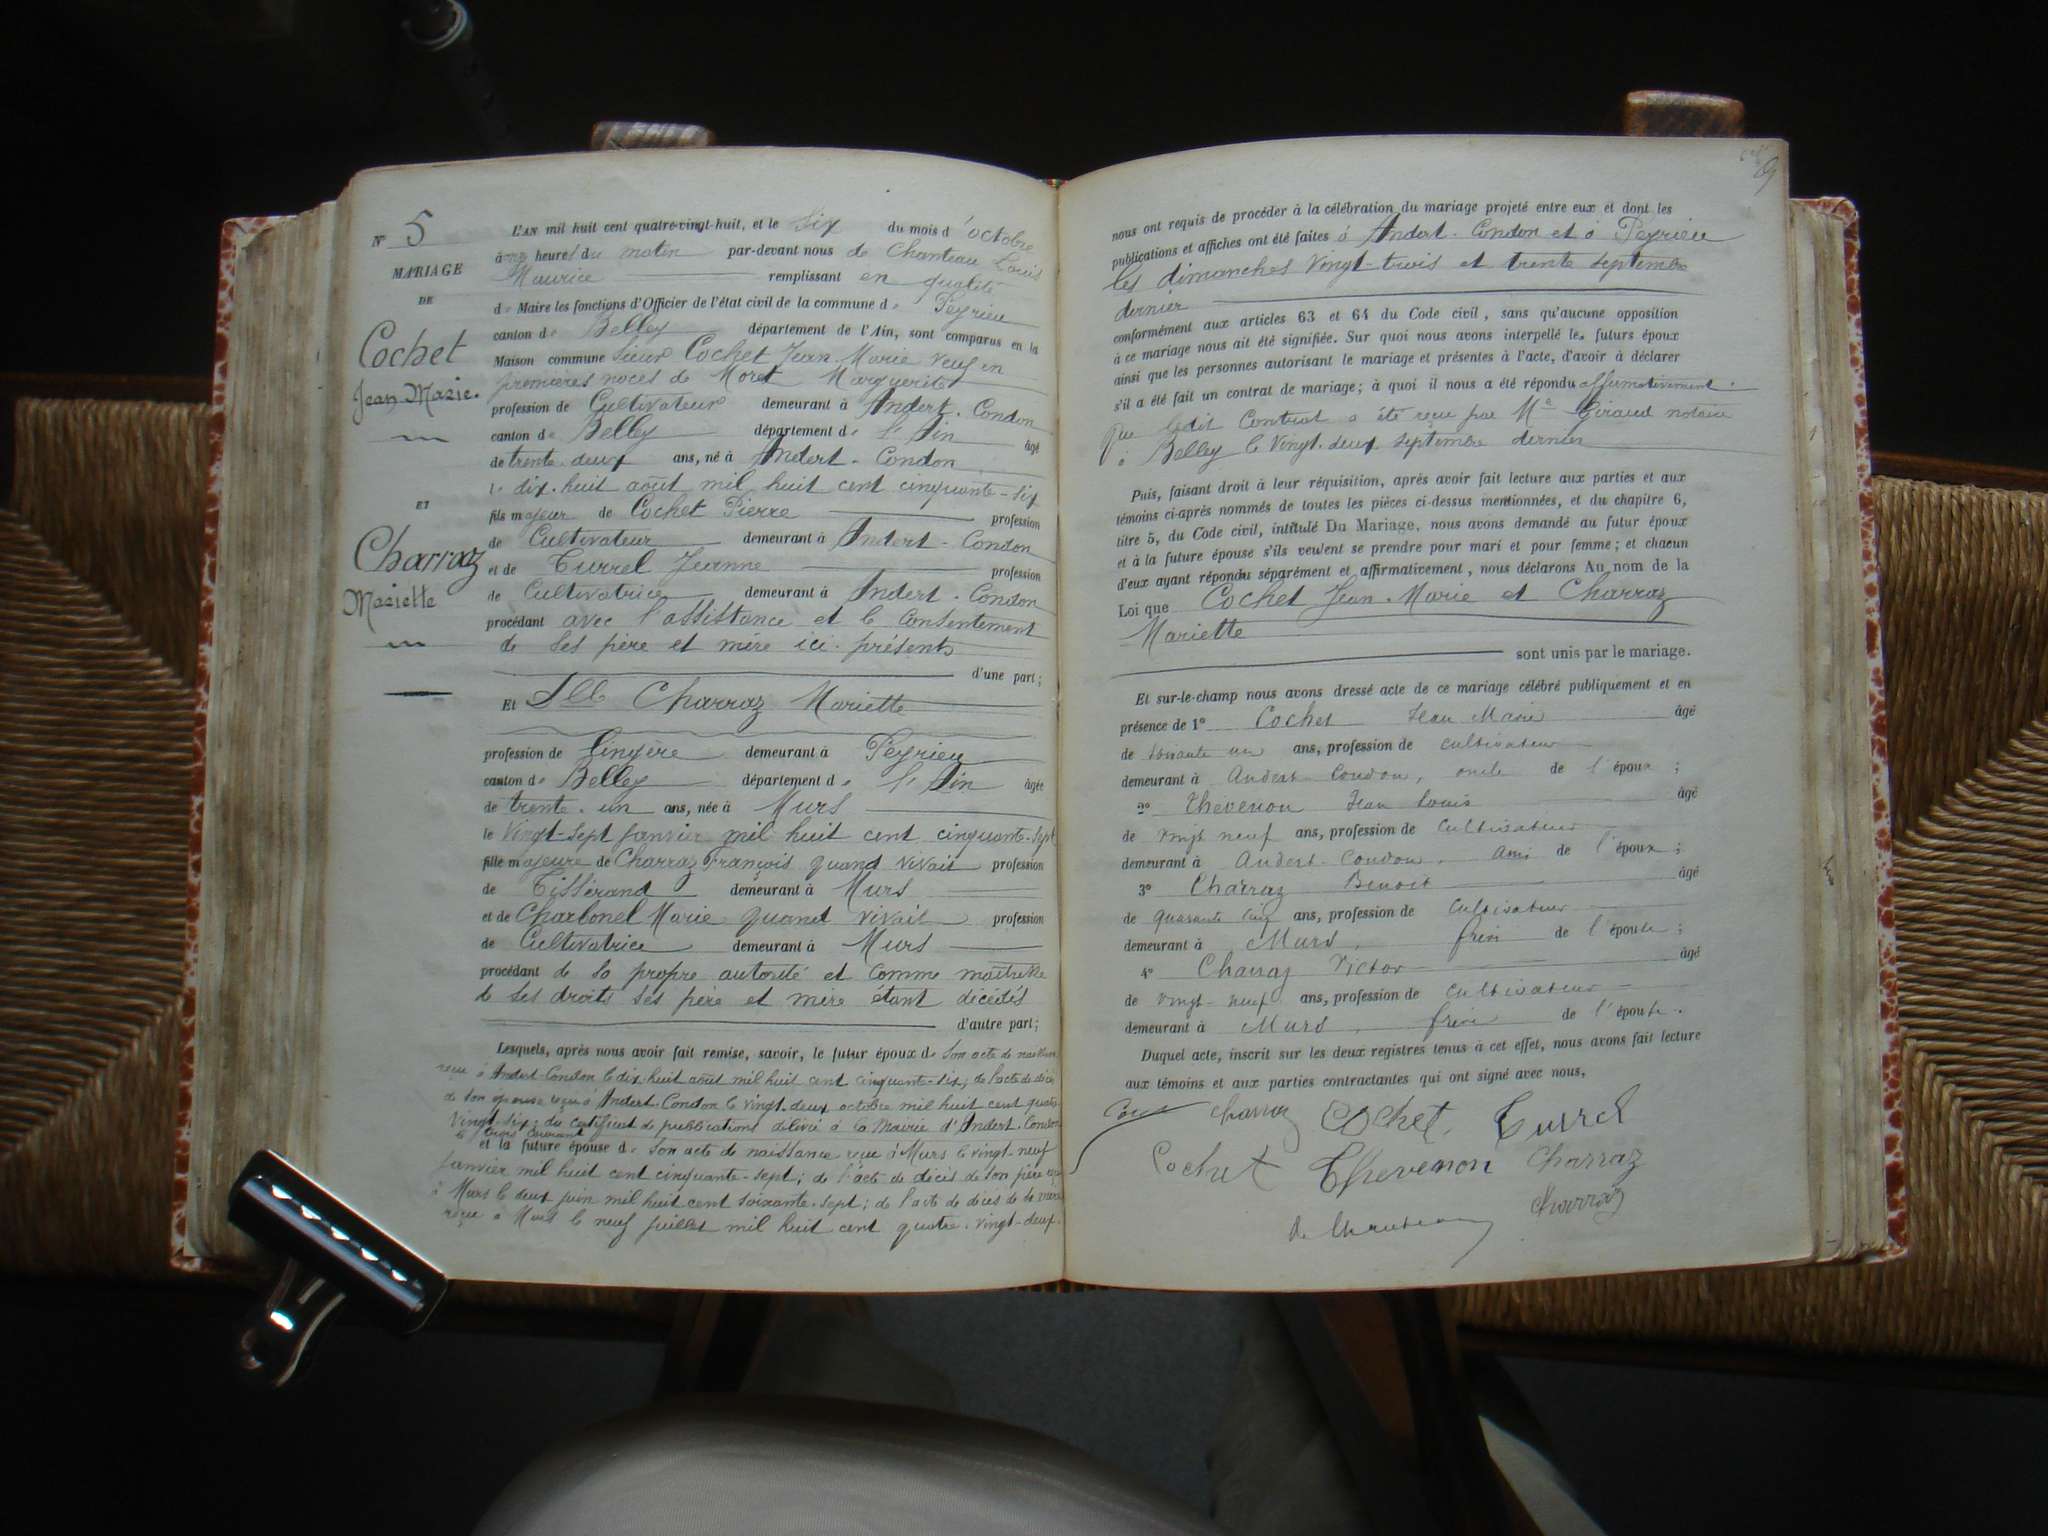 N° 5
MARIAGE
DE
Cochet
Jean Marie.
ET
Charraz
Mariette
L'AN mil huit cent quatre-vingt-huit, et le six du mois d'octobre
à heures du matin par-devant nous de Chanteau Louis
Maurice remplissant en qualité
de Maire les fonctions d'Officier de l'état civil de la commune de Peyrieu
canton de Belley département de l'Ain, sont comparus en la
Maison commune Sieur Cochet Jean Marie veuf en
premières noces de Moret Marguerite
profession de Cultivateur demeurant à Andert-Condon
canton de Belley département de l'Ain âgé
de trente-deux ans, né à Andert-Condon
le dix-huit août mil huit cent cinquante-six
fils majeur de Cochet Pierre profession
de Cultivateur demeurant à Andert-Condon
et de Turrel Jeanne profession
de Cultivatrice demeurant à Andert-Condon
procédant avec l'assistance et le consentement
de ses père et mère ici présents
d'une part;
Et Dlle Charraz Mariette
profession de Lingère demeurant à Peyrieu
canton de Belley département de l'Ain âgée
de trente-un ans, née à Murs
le vingt-sept janvier mil huit cent cinquante-sept
fille majeure de Charraz François quand vivait profession
de Tisserand demeurant à Murs
et de Charbonel Marie quand vivait profession
de Cultivatrice demeurant à Murs
procédant de sa propre autorité et comme maîtresse
de ses droits ses père et mère étant décédés
d'autre part;
Lesquels, après nous avoir fait remise, savoir, le futur époux de son acte de naissance
reçu à Andert-Condon le dix huit août mil huit cent cinquante-six; de l'acte de décès
de son épouse reçu à Andert-Condon le vingt-deux octobre mil huit cent quatre
vingt-six; du certificat de publications délivré à la Mairie d'Andert-Condon
le trois courant
et la future épouse de son acte de naissance reçu à Murs le vingt-neuf
janvier mil huit cent cinquante-sept; de l'acte de décès de son père reçu
à Murs le deux juin mil huit cent soixante-sept; de l'acte de décès de sa mère
reçu à Murs le neuf juillet mil huit cent quatre-vingt-deux.
nous ont requis de procéder à la célébration du mariage projeté entre eux et dont les
publications et affiches ont été faites à Andert-Condon et à Peyrieu
les dimanches vingt-trois et trente septembre
dernier
conformément aux articles 63 et 64 du Code civil, sans qu'aucune opposition
à ce mariage nous ait été signifiée. Sur quoi nous avons interpellé les futurs époux
ainsi que les personnes autorisant le mariage et présentes à l'acte, d'avoir à déclarer
s'il a été fait un contrat de mariage; à quoi il nous a été répondu affirmativement.
que ledit Contrat a été reçu par Me Giraud notaire
à Belley le vingt-deux septembre dernier
Puis, faisant droit à leur réquisition, après avoir fait lecture aux parties et aux
témoins ci-après nommés de toutes les pièces ci-dessus mentionnées, et du chapitre 6,
titre 5, du Code civil, intitulé Du Mariage, nous avons demandé au futur époux
et à la future épouse s'ils veulent se prendre pour mari et pour femme; et chacun
d'eux ayant répondu séparément et affirmativement, nous déclarons Au nom de la
Loi que Cochet Jean-Marie et Charraz
Mariette
sont unis par le mariage.
Et sur-le-champ nous avons dressé acte de ce mariage célébré publiquement et en
présence de 1° Cochet Jean Marie âgé
de soixante un ans, profession de cultivateur
demeurant à Andert-Condon, oncle de l'époux;
2° Thévenon Jean Louis âgé
de vingt neuf ans, profession de cultivateur
demeurant à Andert-Condon, ami de l'époux;
3° Charraz Benoit âgé
de quarante cinq ans, profession de cultivateur
demeurant à Murs, frère de l'épouse;
4° Charraz Victor âgé
de vingt-neuf ans, profession de cultivateur
demeurant à Murs, frère de l'épouse.
Duquel acte, inscrit sur les deux registres tenus à cet effet, nous avons fait lecture
aux témoins et aux parties contractantes qui ont signé avec nous,
charraz Cochet Turrel
Cochet Thevenon Charraz
Charraz
de Chanteau